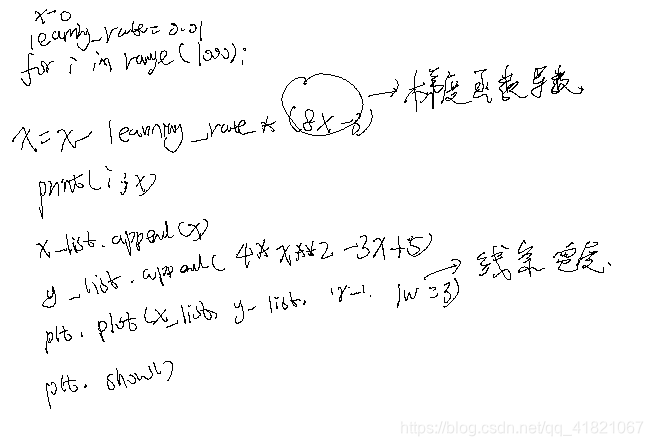 x=0
learning_rate=0.01
for i in range(1000):
x=x-learning_rate*(8x-3) → 梯度函数导数.
print(i,x)
x_list.append(x)
y_list.append(4*x**2-3x+5)
plt.plot(x_list, y_list, 'r-', lw=3) → 线条宽度.
plt.show()
https://blog.csdn.net/qq_41821067